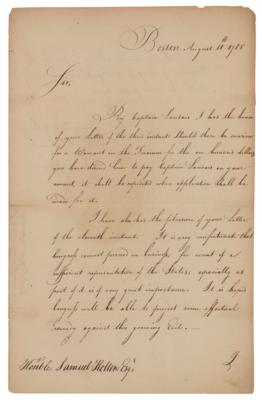 Boston August 18th 1785
Sir,
By Captain Landais I had the honor
of your Letter of the third instant. Should there be occasion
for a Warrant on the Treasurer for the one hundred dollars
you have desired him to pay Captain Landais on your
account, it shall be expedited when application shall be
made for it.
I have also had the pleasure of your Letter
of the eleventh instant. It is very unfortunate that
Congress cannot proceed on business for want of a
sufficient representation of the States; especially as
part of it is of very great importance. It is hoped
Congress will be able to project some effectual
remedy against this growing Evil.
Honble. Samuel Holten Esqr.